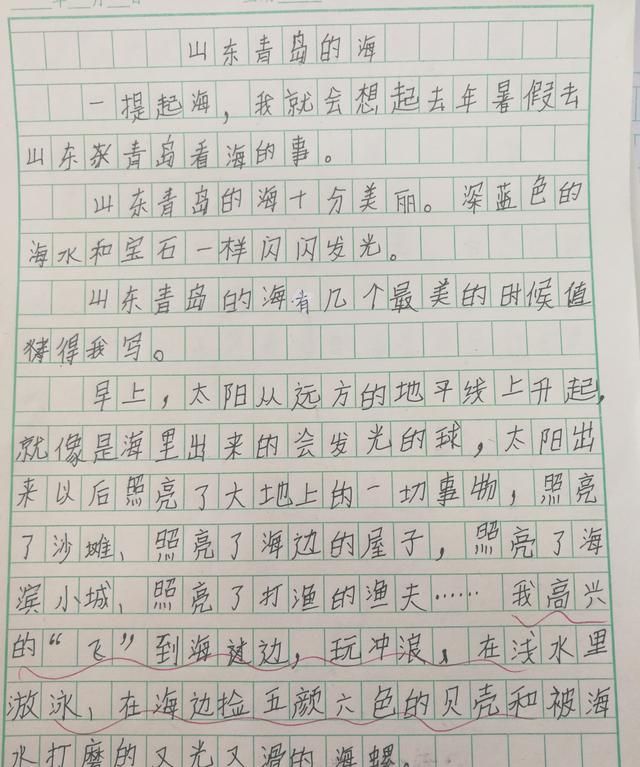 年 月
山东青岛的海
一提起海，我就会想起去年暑假去
山东青岛看海的事。
山东青岛的海十分美丽。深蓝色的
海水和宝石一样闪闪发光。
山东青岛的海有几个最美的时候值
得我写。
早上，太阳从远方的地平线上升起，
就像是海里出来的会发光的球，太阳出
来以后照亮了大地上的一切事物，照亮
了沙滩、照亮了海边的屋子，照亮了海
滨小城、照亮了打渔的渔夫……我高兴
的“飞”到海边，玩冲浪，在浅水里
游泳、在海边捡五颜六色的贝壳和被海
水打磨的又光又滑的海螺。